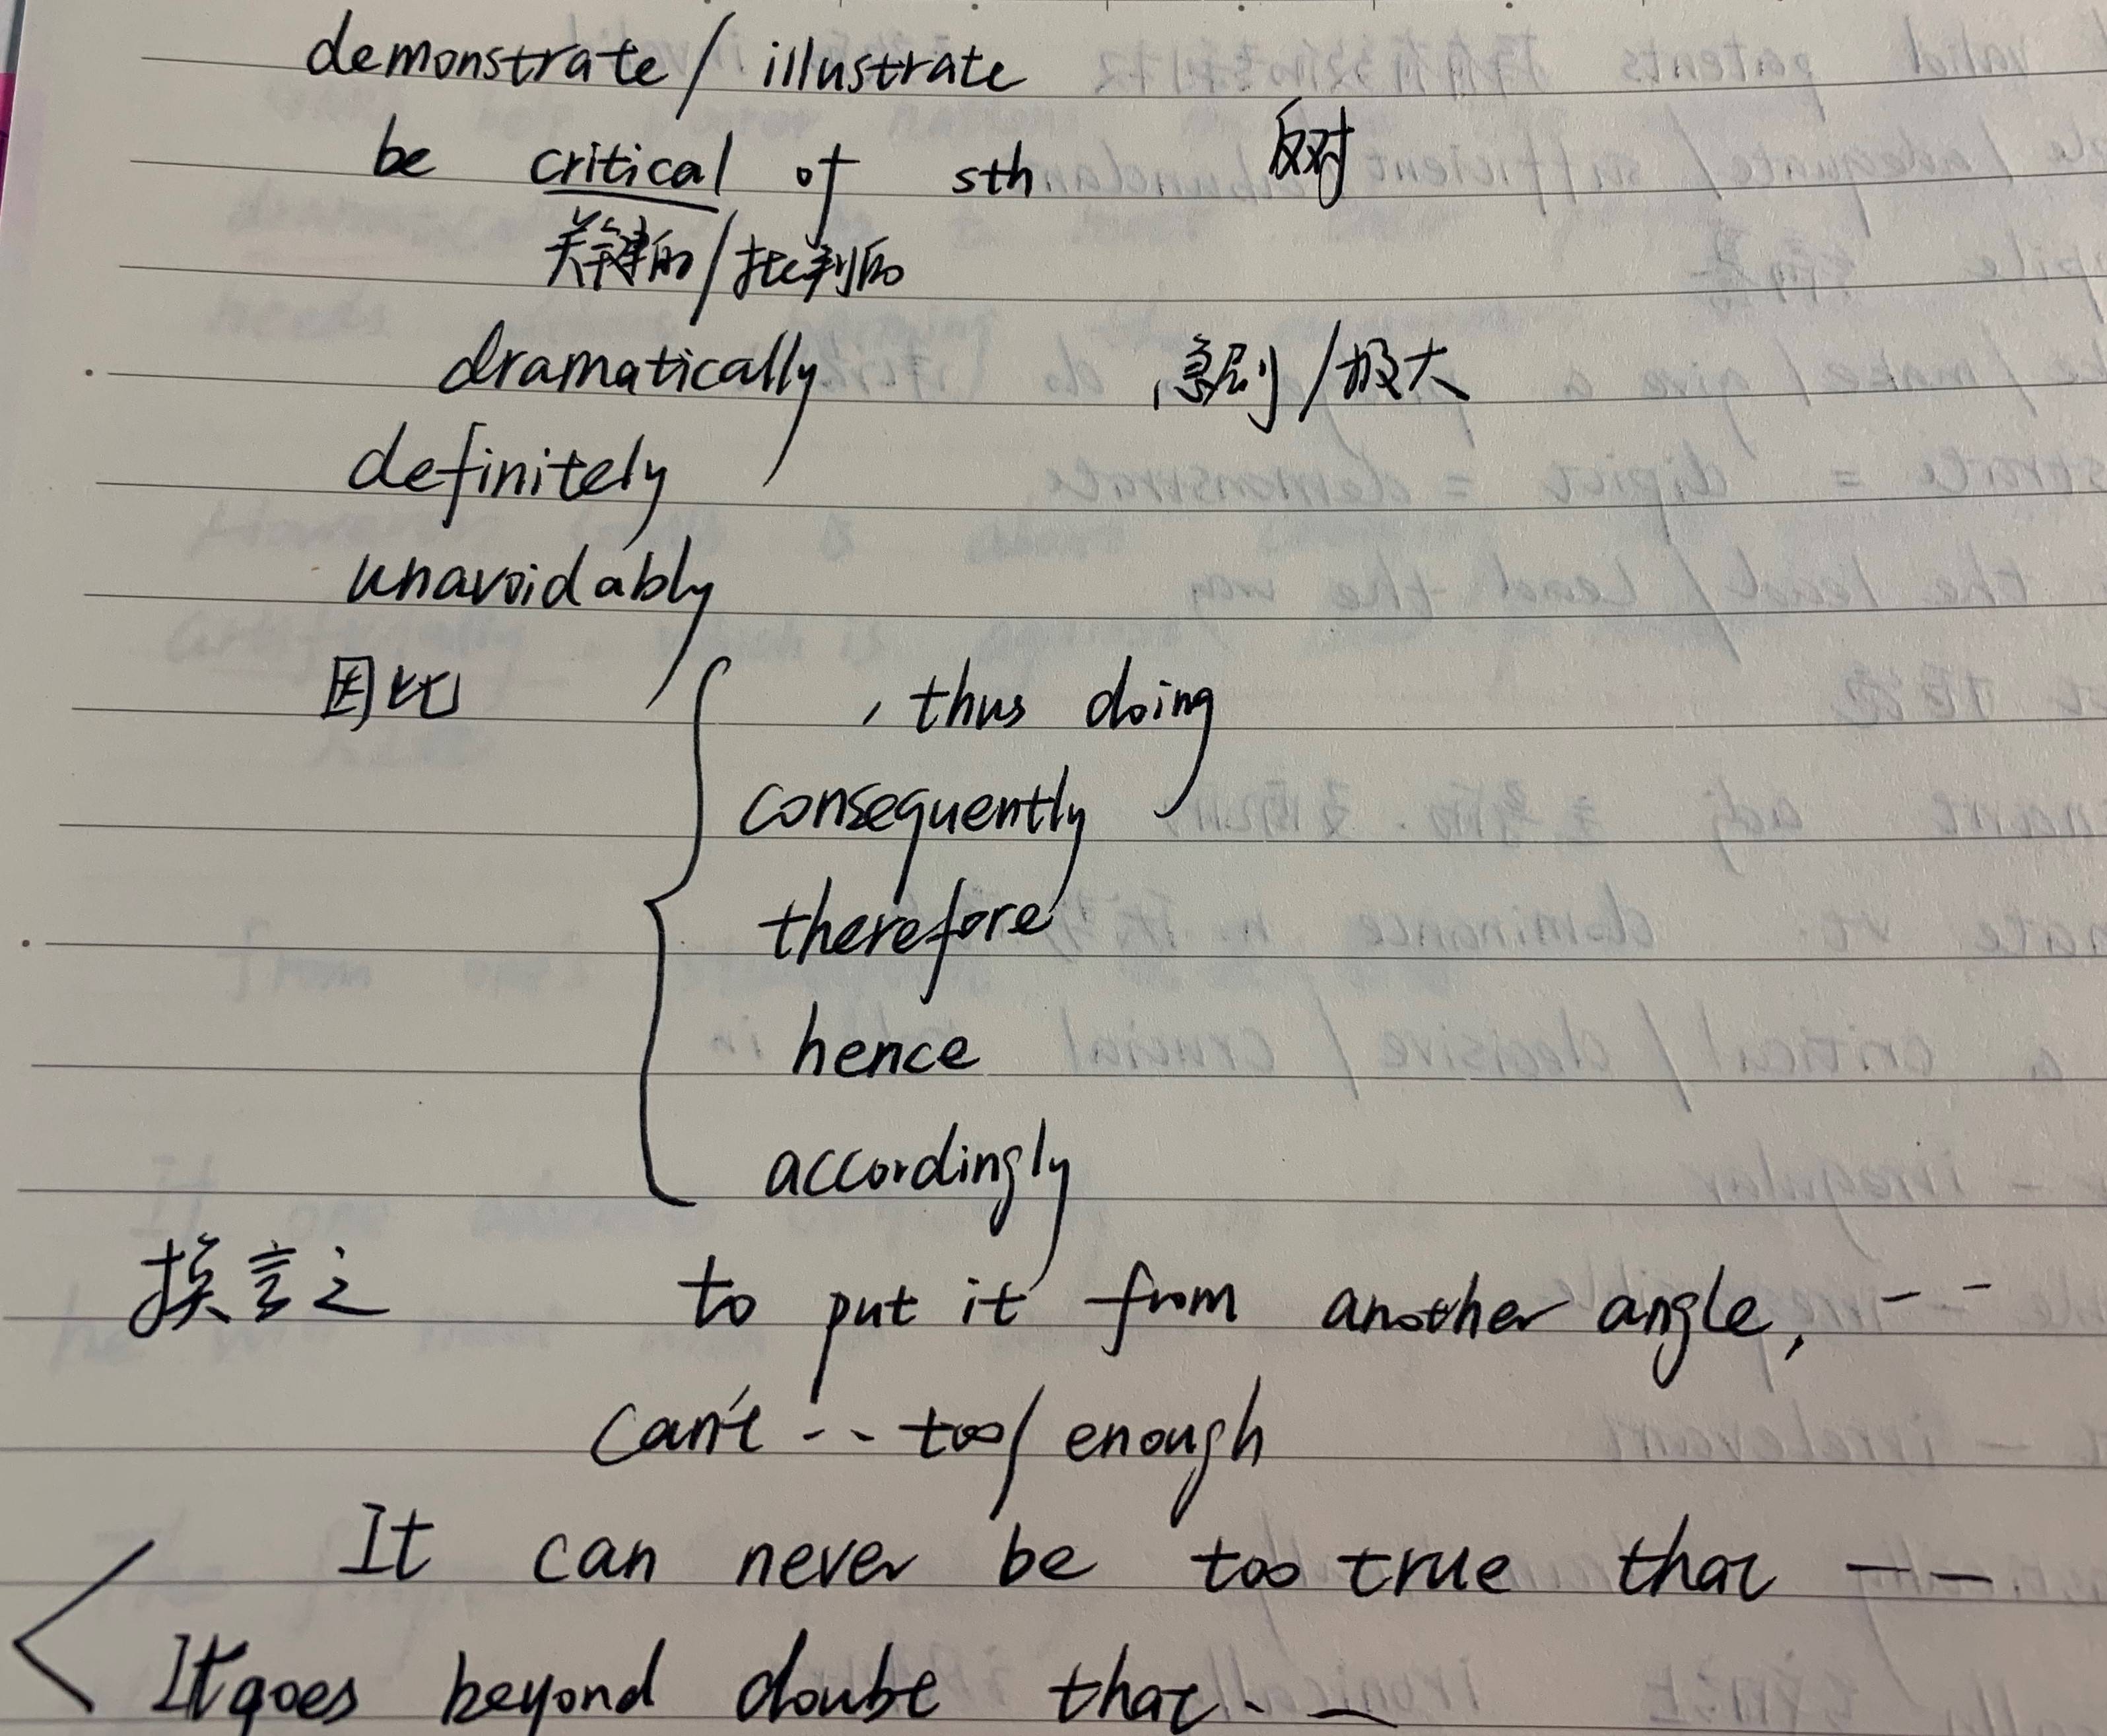 demonstrate / illustrate
be critical of sth 反对
关键的/批判的
dramatically 急剧/极大
definitely
unavoidably
因此
, thus doing
consequently
therefore
hence
accordingly
换言之 to put it from another angle, --
can't -- too/ enough
It can never be too true that --
It goes beyond doubt that --